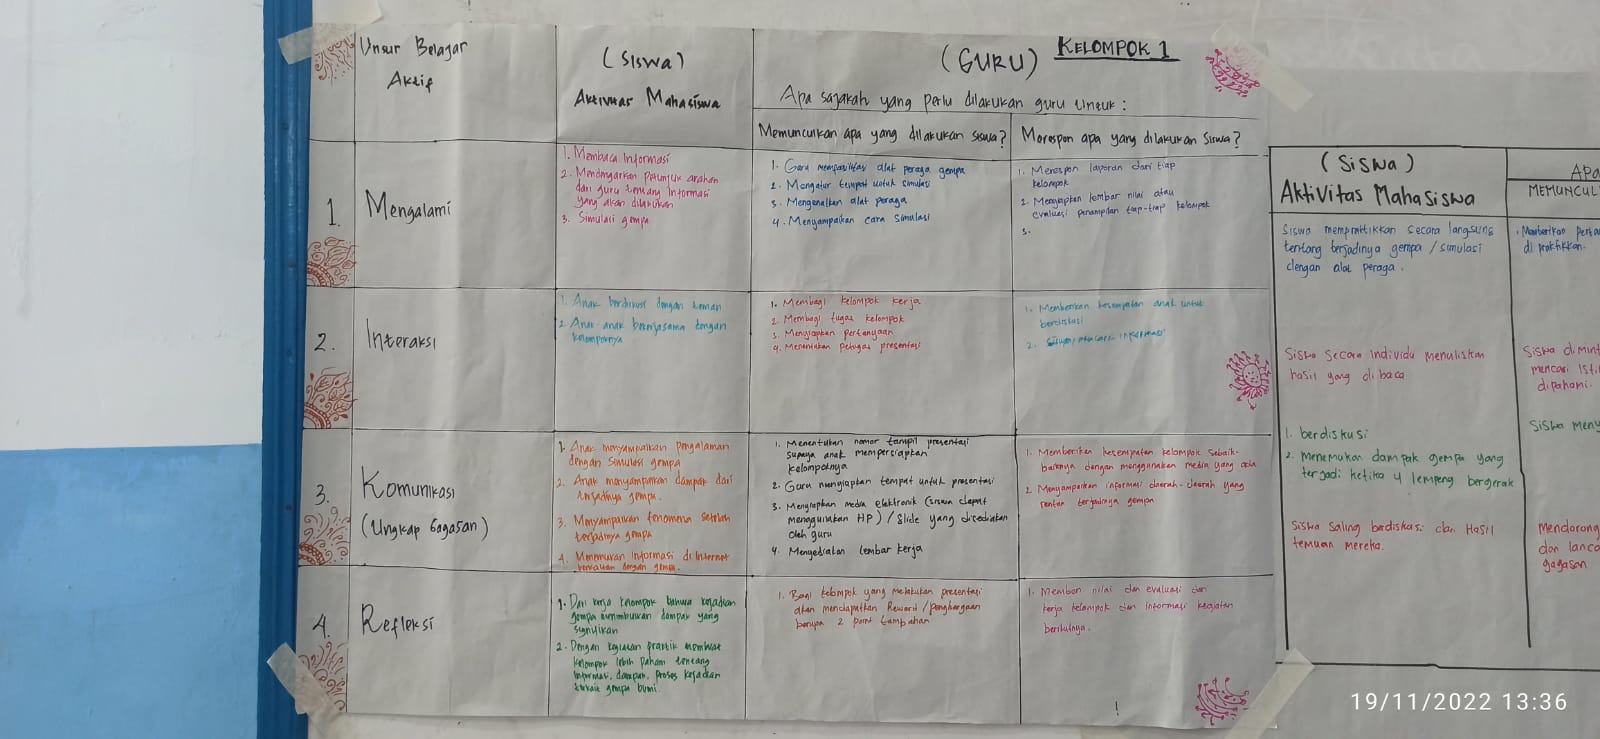 KELOMPOK 1
Unsur Belajar
Aktif
(SISWA)
Aktivitas Mahasiswa
(GURU)
Apa sajakah yang perlu dilakukan guru untuk :
Memunculkan apa yang dilakukan siswa?
Merespon apa yang dilakukan Siswa?
1. Mengalami
1. Membaca Informasi
2. Mendengarkan petunjuk arahan
dari guru tentang Informasi
yang akan dilakukan
3. Simulasi gempa
1. Guru memfasilitasi alat peraga gempa
2. Mengatur tempat untuk simulasi
3. Mengenalkan alat peraga
4. Menyampaikan cara simulasi
1. Merespon laporan dari tiap
kelompok
2. Menyiapkan lembar nilai atau
evaluasi penampilan tiap-tiap kelompok
3.
2. Interaksi
1. Anak berdiskusi dengan teman
2. Anak-anak bekerjasama dengan
kelompoknya
1. Membagi kelompok kerja
2. Membagi tugas kelompok
3. Menyiapkan pertanyaan
4. Menentukan petugas presentasi
1. Memberikan kesempatan anak untuk
berdiskusi
2. informasi
3. Komunikasi
(Ungkap Gagasan)
1. Anak menyampaikan pengalaman
dengan simulasi gempa
2. Anak menyampaikan dampak dari
terjadinya gempa.
3. Menyampaikan fenomena setelah
terjadinya gempa
4. Menemukan Informasi di Internet
berkaitan dengan gempa.
1. Menentukan nomor tampil presentasi
supaya anak mempersiapkan
kelompoknya
2. Guru menyiapkan tempat untuk presentasi
3. Menyiapkan media elektronik (siswa dapat
menggunakan HP) / Slide yang disediakan
oleh guru
4. Menyediakan lembar kerja
1. Memberikan kesempatan kelompok sebaik-
baiknya dengan menggunakan media yang ada
2. Menyampaikan informasi daerah-daerah yang
rentan terjadinya gempa
4. Refleksi
1. Dari kerja kelompok bahwa kejadian
gempa menimbulkan dampak yang
signifikan
2. Dengan kegiatan praktik membuat
kelompok lebih paham tentang
informasi, dampak, proses kejadian
terkait gempa bumi.
1. Bagi kelompok yang melakukan presentasi
akan mendapatkan Reward / penghargaan
berupa 2 point tambahan
1. Memberi nilai dan evaluasi dari
kerja kelompok dan informasi kegiatan
berikutnya.
(Siswa)
Aktivitas Mahasiswa
APA
MEMUNCUL
Siswa mempraktikkan secara langsung
tentang terjadinya gempa / simulasi
dengan alat peraga.
di praktikkan.
Siswa secara individu menuliskan
hasil yang di baca
Siswa dimint
mencari isti
dipahami.
1. berdiskusi
2. menemukan dampak gempa yang
terjadi ketika 4 lempeng bergerak
Siswa meny
Siswa saling berdiskusi dari Hasil
temuan mereka.
Mendorong
dan lanca
gagasan
19/11/2022 13:36